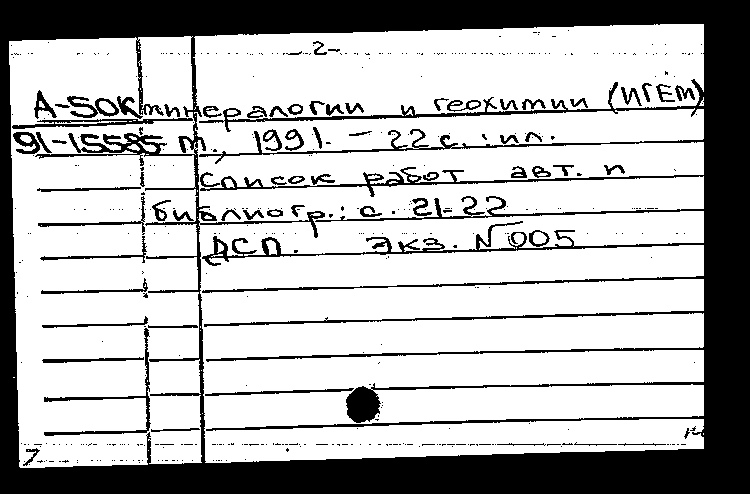 -2-
А-50к минералогии и геохимии (ИГЕМ)
91-15585 м., 1991. - 22 с. : ил.
Список работ авт. и
библиогр.: с. 21-22
ДСП. Экз. №005
7